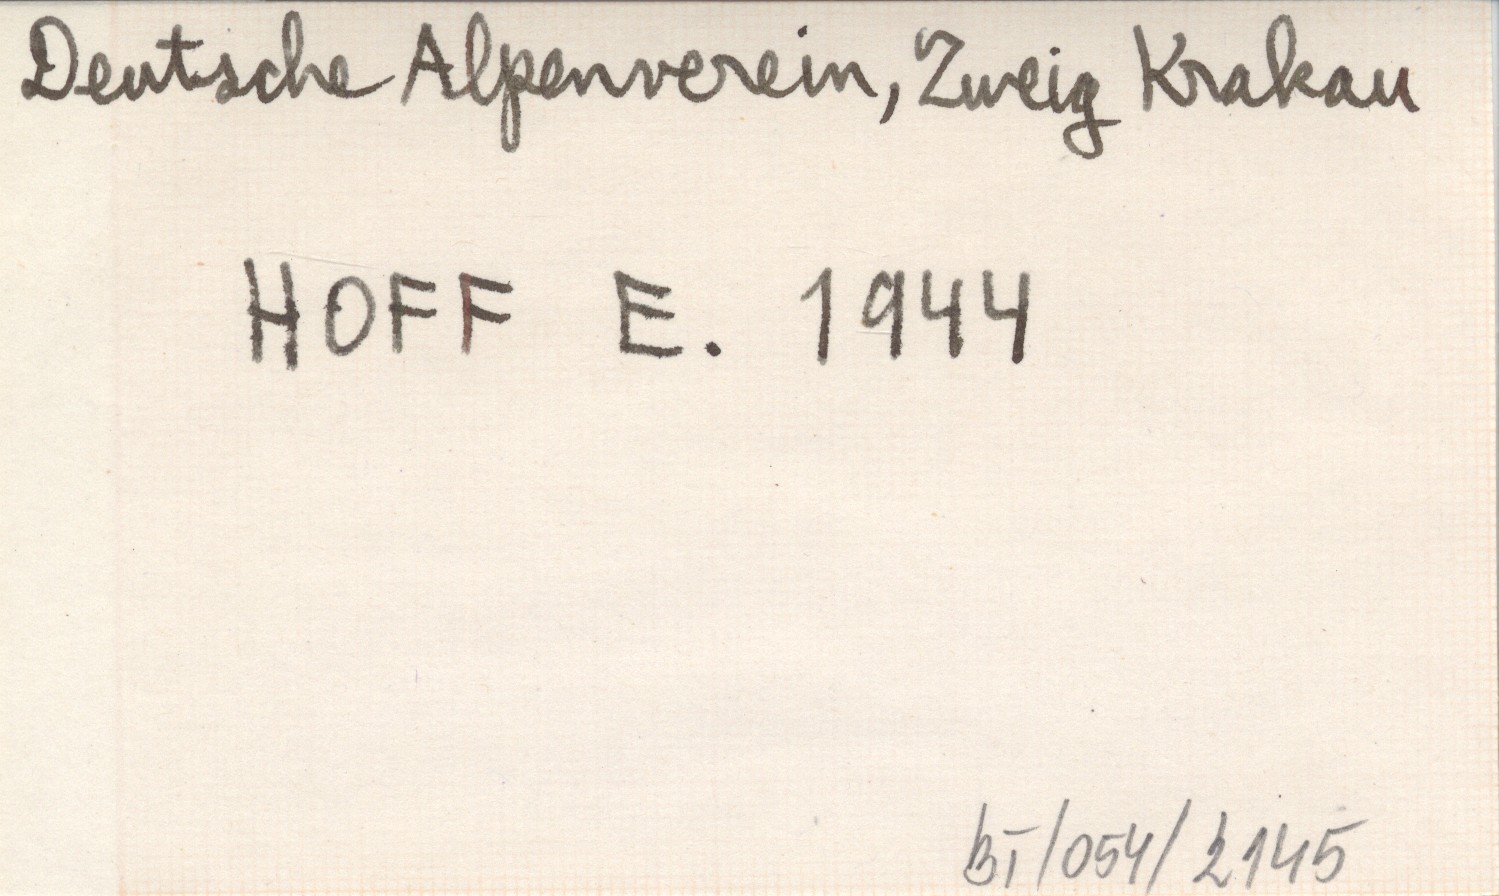 Deutsche Alpenverein, Zweig Krakau
HOFF E. 1944
BI/054/2145